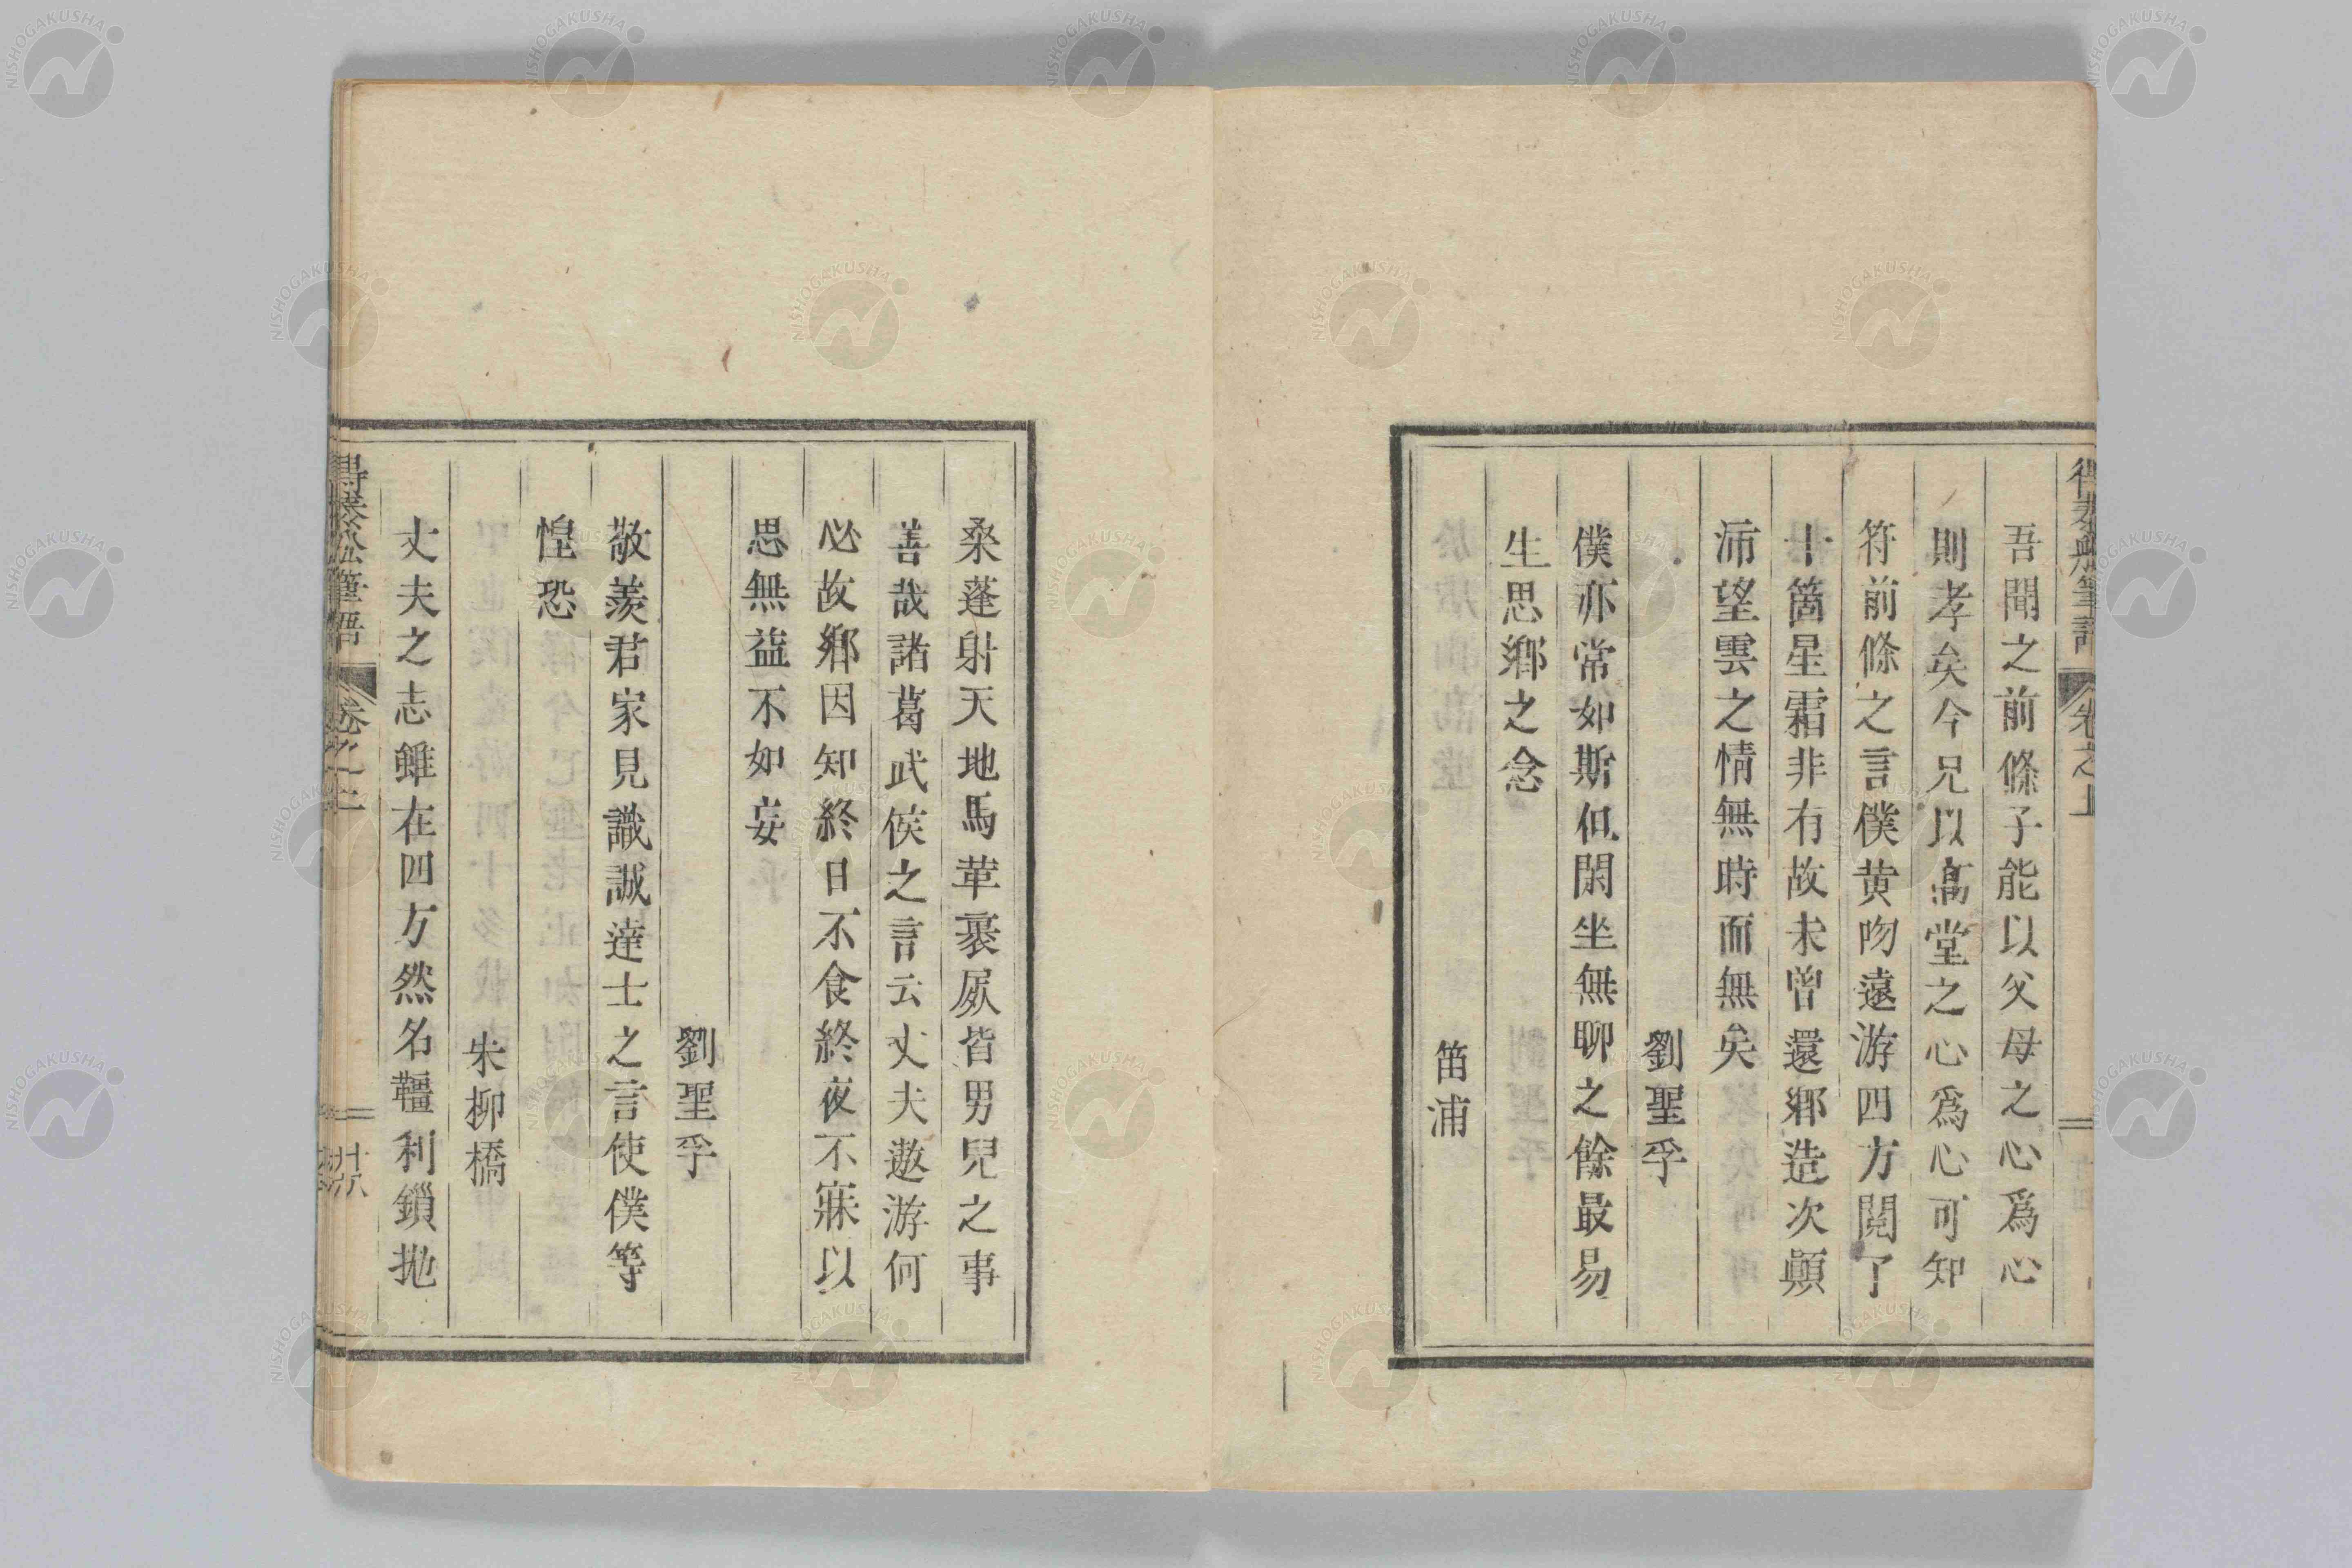 吾聞之前條子能以父母之心爲心
則孝矣今兄以髙堂之心爲心可知
符前條之言僕黄吻遠游四方閲了
十箇星霜非有故未曾還鄉造次顚
沛望雲之情無時而無矣
劉聖孚
僕亦常如斯但閑坐無聊之餘最易
生思鄉之念
笛浦
桒蓬射天地馬革裹屍皆男兒之事
善哉諸葛武侯之言云丈夫遨游何
必故鄉因知終日不食終夜不寐以
思無益不如妄
劉聖孚
敬羨君家見識誠達士之言使僕等
惶恐
朱柳橋
丈夫之志雖在四方然名韁利鎖抛
卷之上
NISHOGAKUSHA